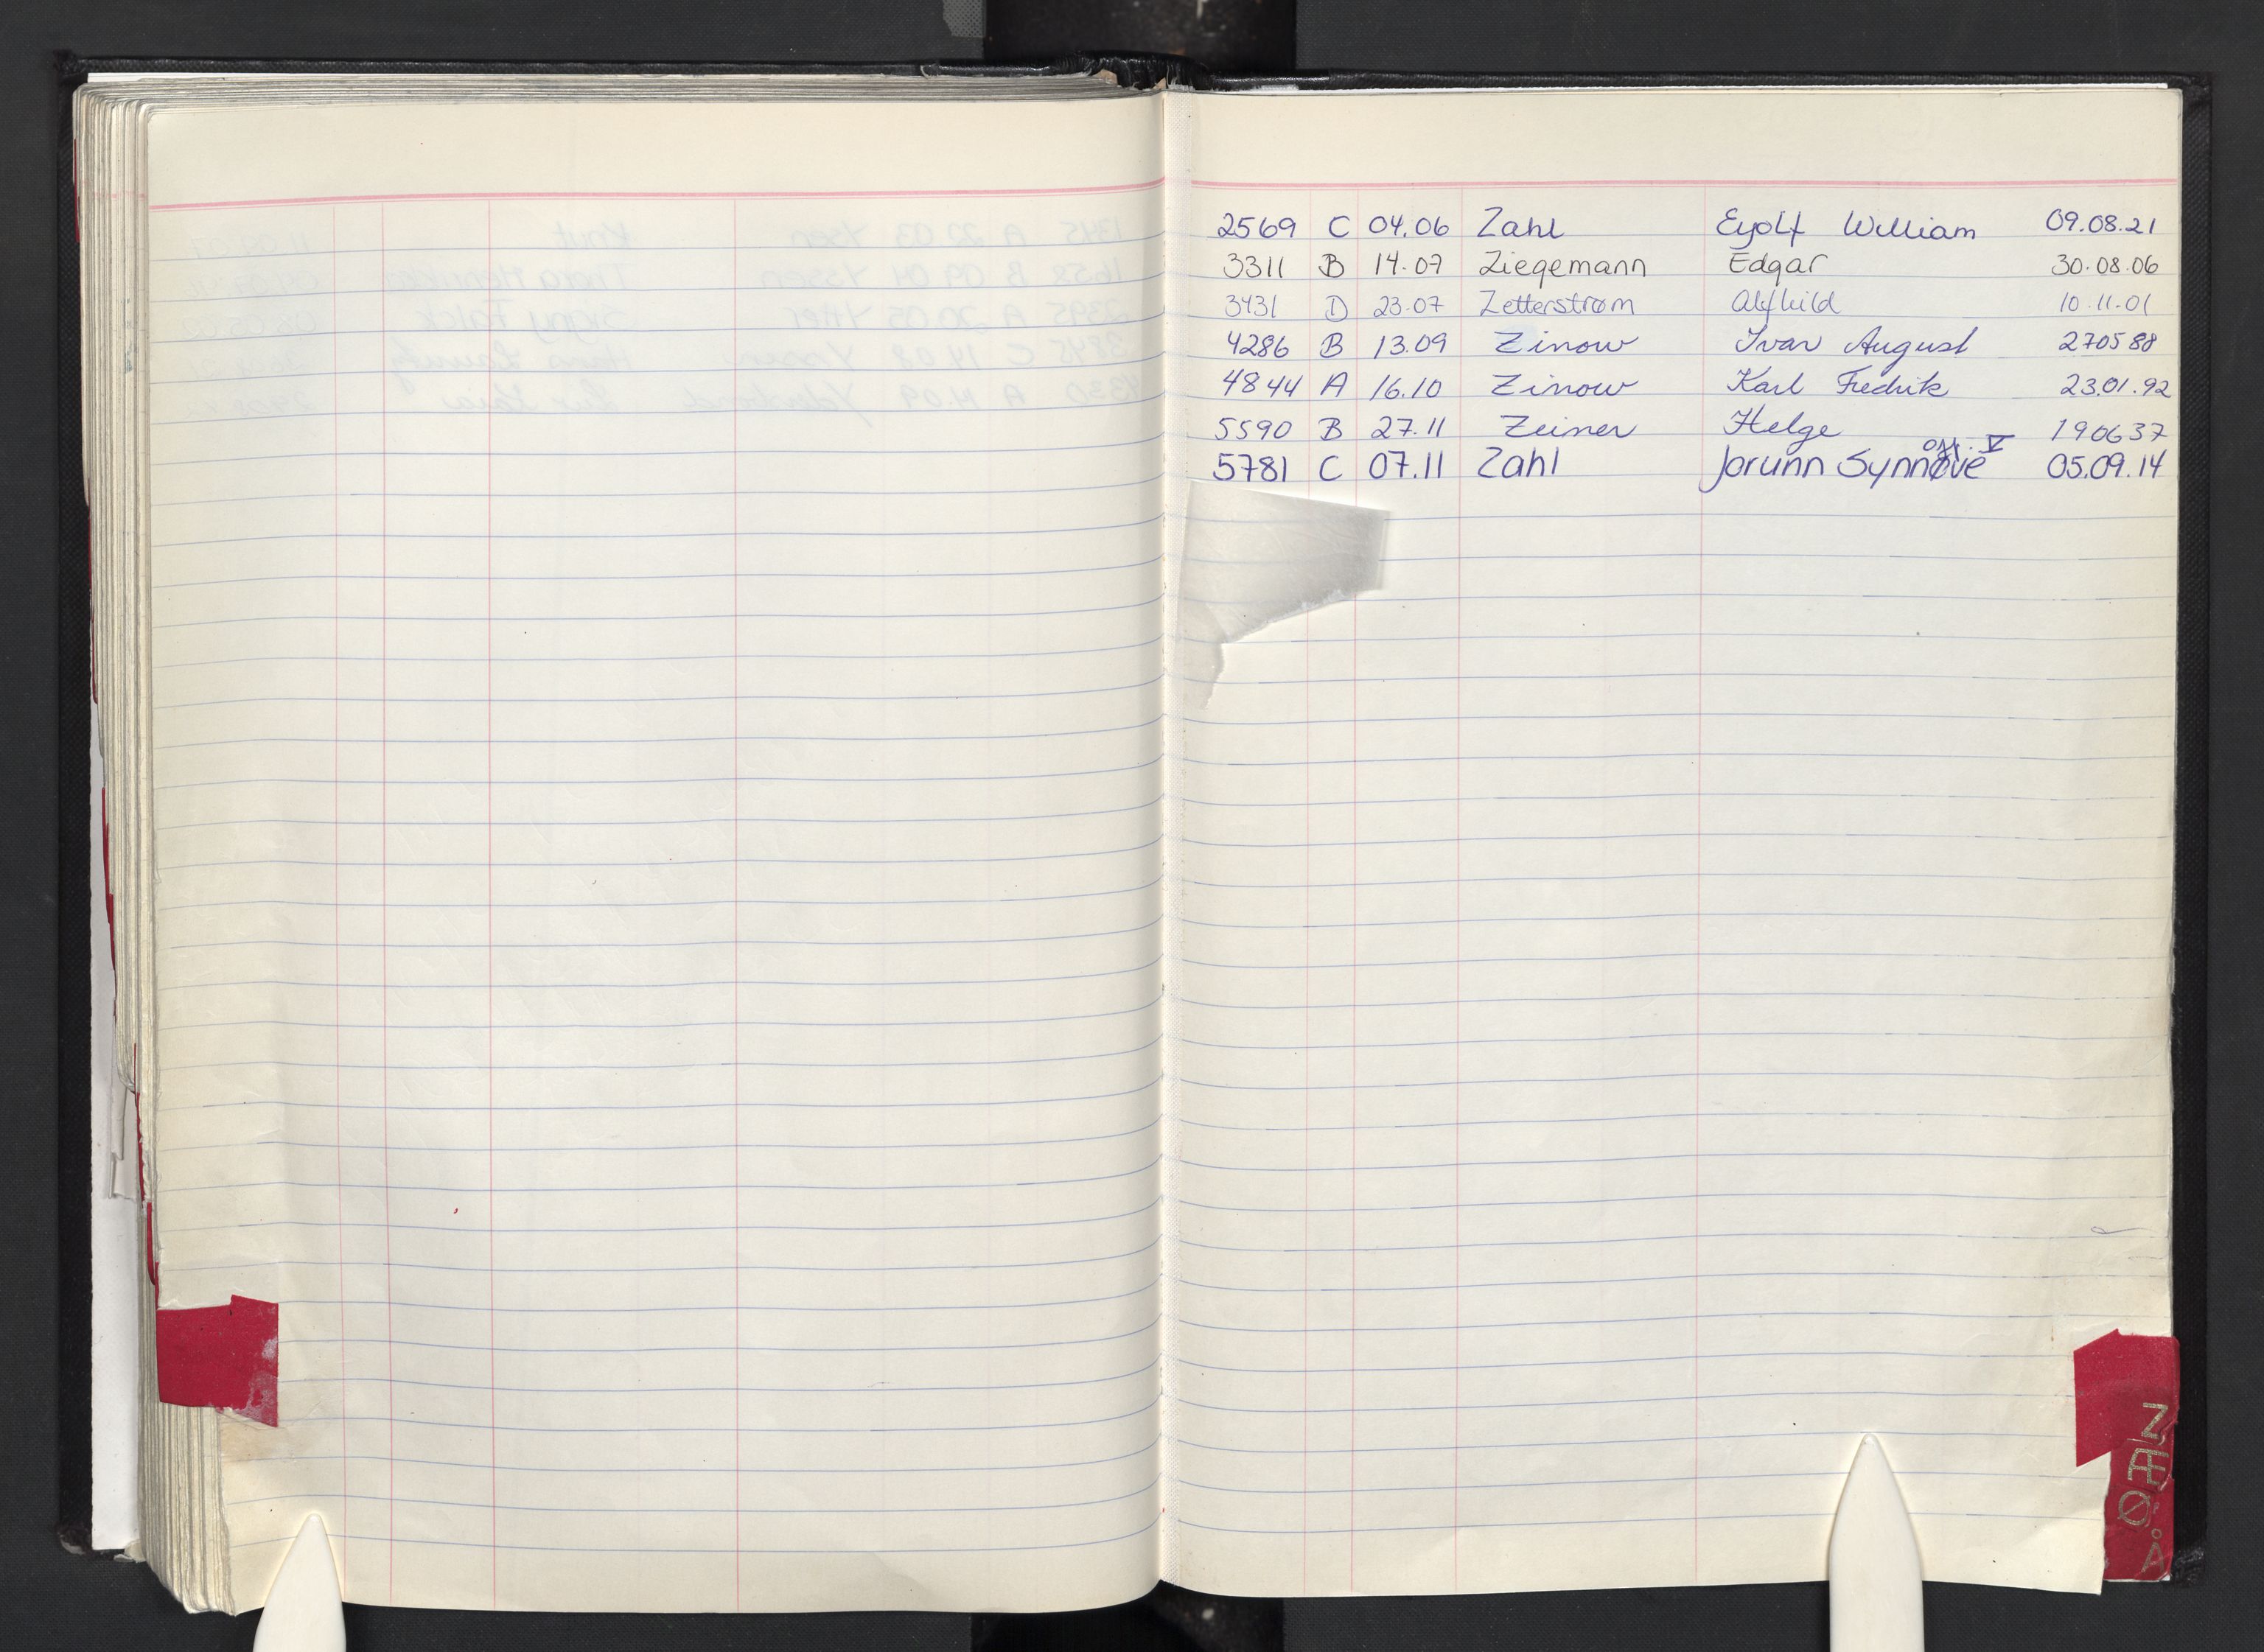 2569 C 04.06 Zahl Eyolf William 09.08.21
3311 B 14.07 Ziegemann Edgar 30.08.06
3431 D 23.07 Zetterstrøm Alfhild 10.11.01
4286 B 13.09 Zinow Ivar August 270588
4844 A 16.10 Zinow Karl Fredrik 23.01.92
5590 B 27.11 Zeiner Helge 190637
5781 C 07.11 Zahl Jorunn Synnøve 05.09.14
Z
Æ
Ø
Å